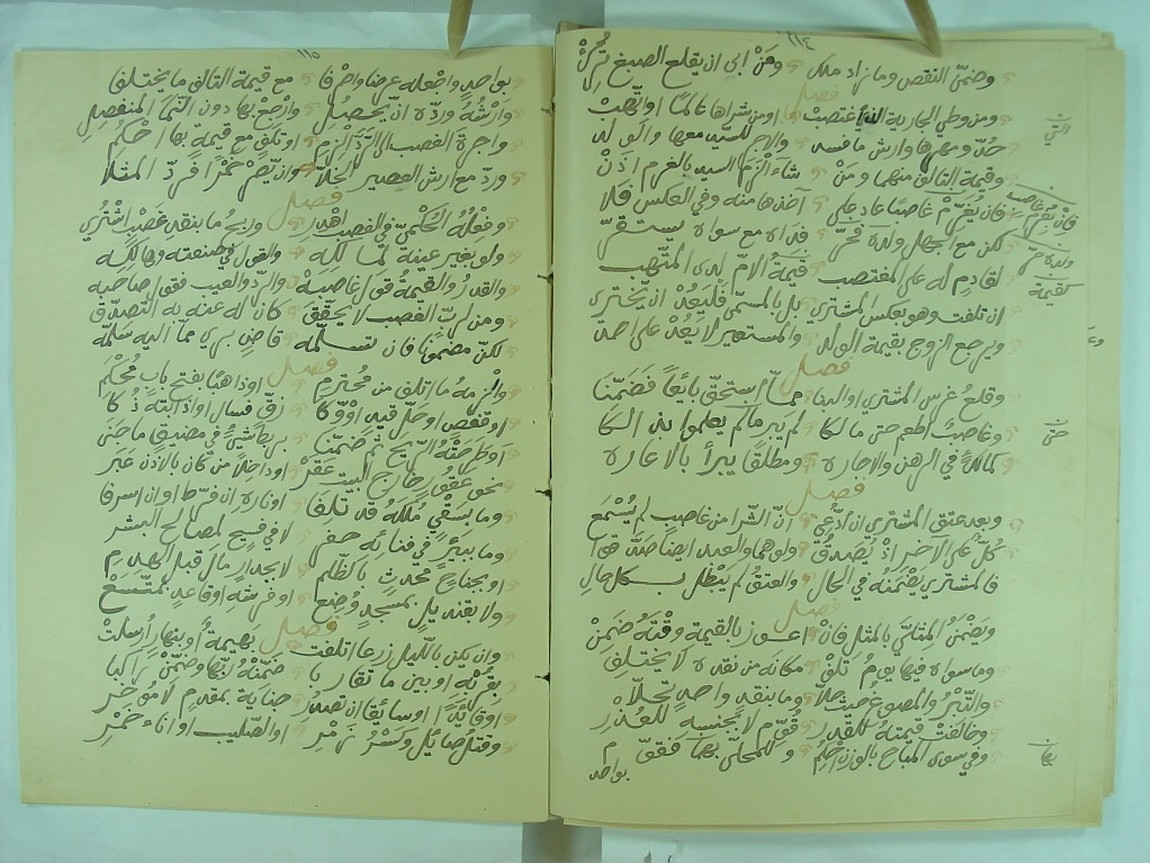 ١١٤
وضمن النقص وما زاد ملك ومن ابى ان يقلع الصبغ تُرك
فصل
ومن وطي الجارية التي اغتصب او من شراها عالما او اتهب
حدّ ومهرها وارش ما فسد والاجر للسيد معها والولد
وقيمة التالف منهما ومن شاء ألزم السيد بالغرم اذن
فان يغرم غاصبا عاد على آخذها منه وفي العكس فلا
لكن مع الجهل ولده فداه مع سواه يستقر
لقادم له على المغتصب قيمة الام لدى المتهب
ان تلفت وهو بعكس المشتري بل بالمسمى فليعد ان يختري
ويرجع الزوج بقيمة الولد والمستعير لا يعد على احد
فصل
وقلع غرس المشتري او البنا مما استحق بائعا فضمنا
وغاصب اطعم حتى مالكا لم يبر ما لم يعلموا بذلكا
كمالك في الرهن والاجاره ومطلقا يبرأ بالاعاره
فصل
وبعد عتق المشتري ان ادعي ان الشرا من غاصب لم يسمع
كل على الآخر اذ يصدق ولو هما والعبد ايضا صدقوا
فالمشتري يضمنه في الحال والعتق لم يبطل بكل حال
فصل
ويضمن المثلي بالمثل فان اعوز بالقيمة وقته ضمن
وما سواه فيها يوم تلف مكانه من نقده لا يختلف
والتبر والمصوغ حيث حلا وما بنقد واحد تحلا
وخالفت قيمته للقدر قوم لا بجنسه للعذر
وفي سوى المباح بالوزن احكم وللمحلى بهما فقوم
بواحد
التي
فان يغرم غاصب
ولده
كقيمة
حتى
بهما
١١٥
بواحد واجعله عرضا واحرفا مع قيمة التالف ما يختلفا
وارشه ورده ان يحصل وارجع بها دون النما المنفصل
واجرة الغصب الى الرد الزم او تلف مع قيمة بها احكم
ورد مع ارش العصير الخلا وان يصر خمرا فرد المثلا
فصل
وفعله الحكمي في الغصب اهدر وربح ما بنقد غصب اشتري
ولو بغير عينه لمالكه والقول في صنعته وهالكه
والقدر والقيمة قول غاصبه والرد والعيب فقول صاحبه
ومن لرب الغصب لا يحقق كان له عنه به التصدق
لكن مضمونا فان تسلمه قاض بري مما اليه سلمه
فصل
والزمه ما اتلف من محترم او ذاهبا بفتح باب محكم
او قفص او حل قيد او وكا زق فسال او اذابته ذكا
او طرحته الريح ثم ضمنا بربط شيء في مضيق ما جنى
نحو عقور خارج البيت عقر او داخلا من كان بالاذن عبر
وما بسقي ملكه قد تلفا او ناره ان فرط او ان اسرفا
وما ببئر في فنائه حفر لا في فسيح لمصالح البشر
او بجناح محدث بالظلم لا بجدار مال قبل الهدم
ولا بقنديل بمسجد وضع او فرشه او قاعد بمتسع
فصل
وان يكن بالليل زرعا اتلفت بهيمة او بنهار ارسلت
بقربه او بين ما تقاربا ضمنه ربها وضمن راكبا
او قائدا او سائقا ان تصدر جناية بمقدم لا مؤخر
وقتل صائل وكسر مزمر او الصليب او اناء خمر